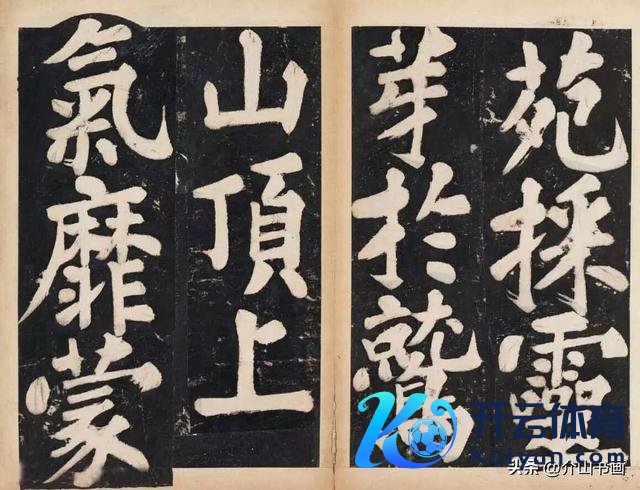 苑採靈
芽於鷲
山頂上
氣靡蒙
开云体育
Kaiyun.com
头条 @介山书画